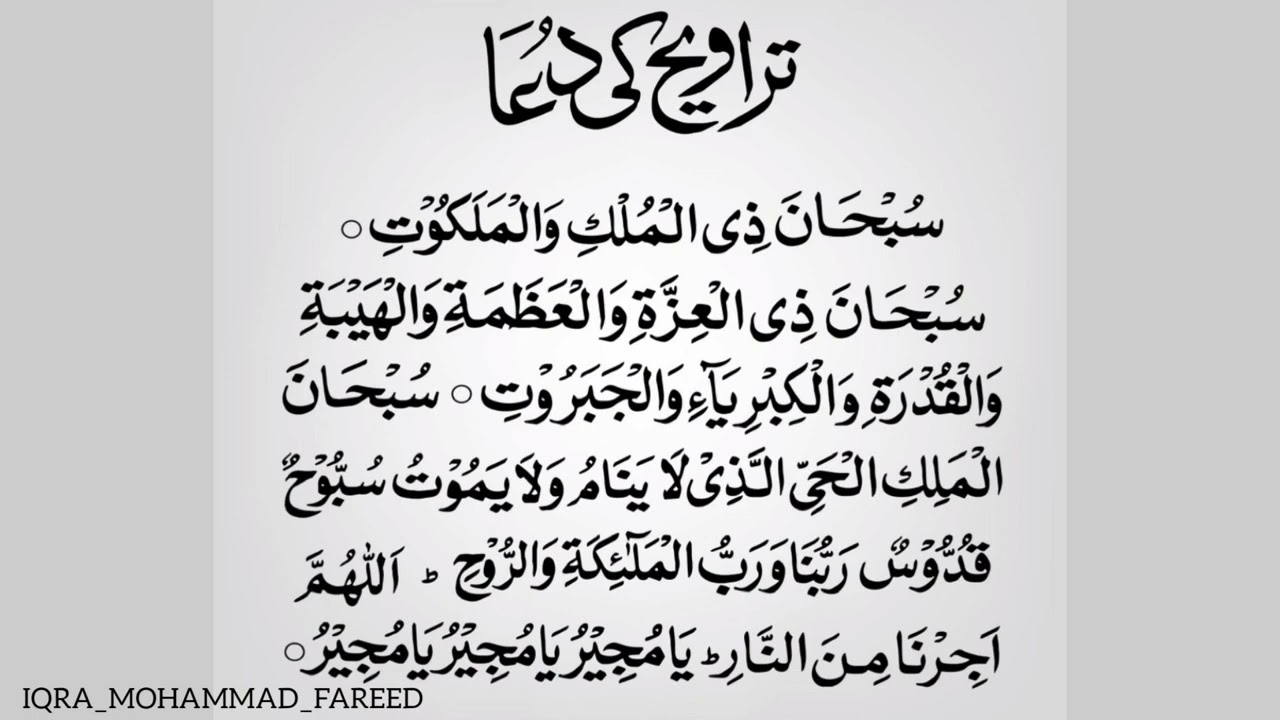 تراویح کی دُعا
سُبْحَانَ ذِی الْمُلْكِ وَالْمَلَكُوْتِ ○
سُبْحَانَ ذِی الْعِزَّةِ وَالْعَظَمَةِ وَالْهَيْبَةِ
وَالْقُدْرَةِ وَالْكِبْرِيَآءِ وَالْجَبَرُوْتِ ○ سُبْحَانَ
الْمَلِكِ الْحَیِّ الَّذِیْ لَا يَنَامُ وَلَا يَمُوْتُ سُبُّوْحٌ
قُدُّوْسٌ رَبُّنَا وَرَبُّ الْمَلٰٓئِكَةِ وَالرُّوْحِ ؕ اَللّٰهُمَّ
اَجِرْنَا مِنَ النَّارِ ؕ يَا مُجِيْرُ يَا مُجِيْرُ يَا مُجِيْرُ ○
IQRA_MOHAMMAD_FAREED